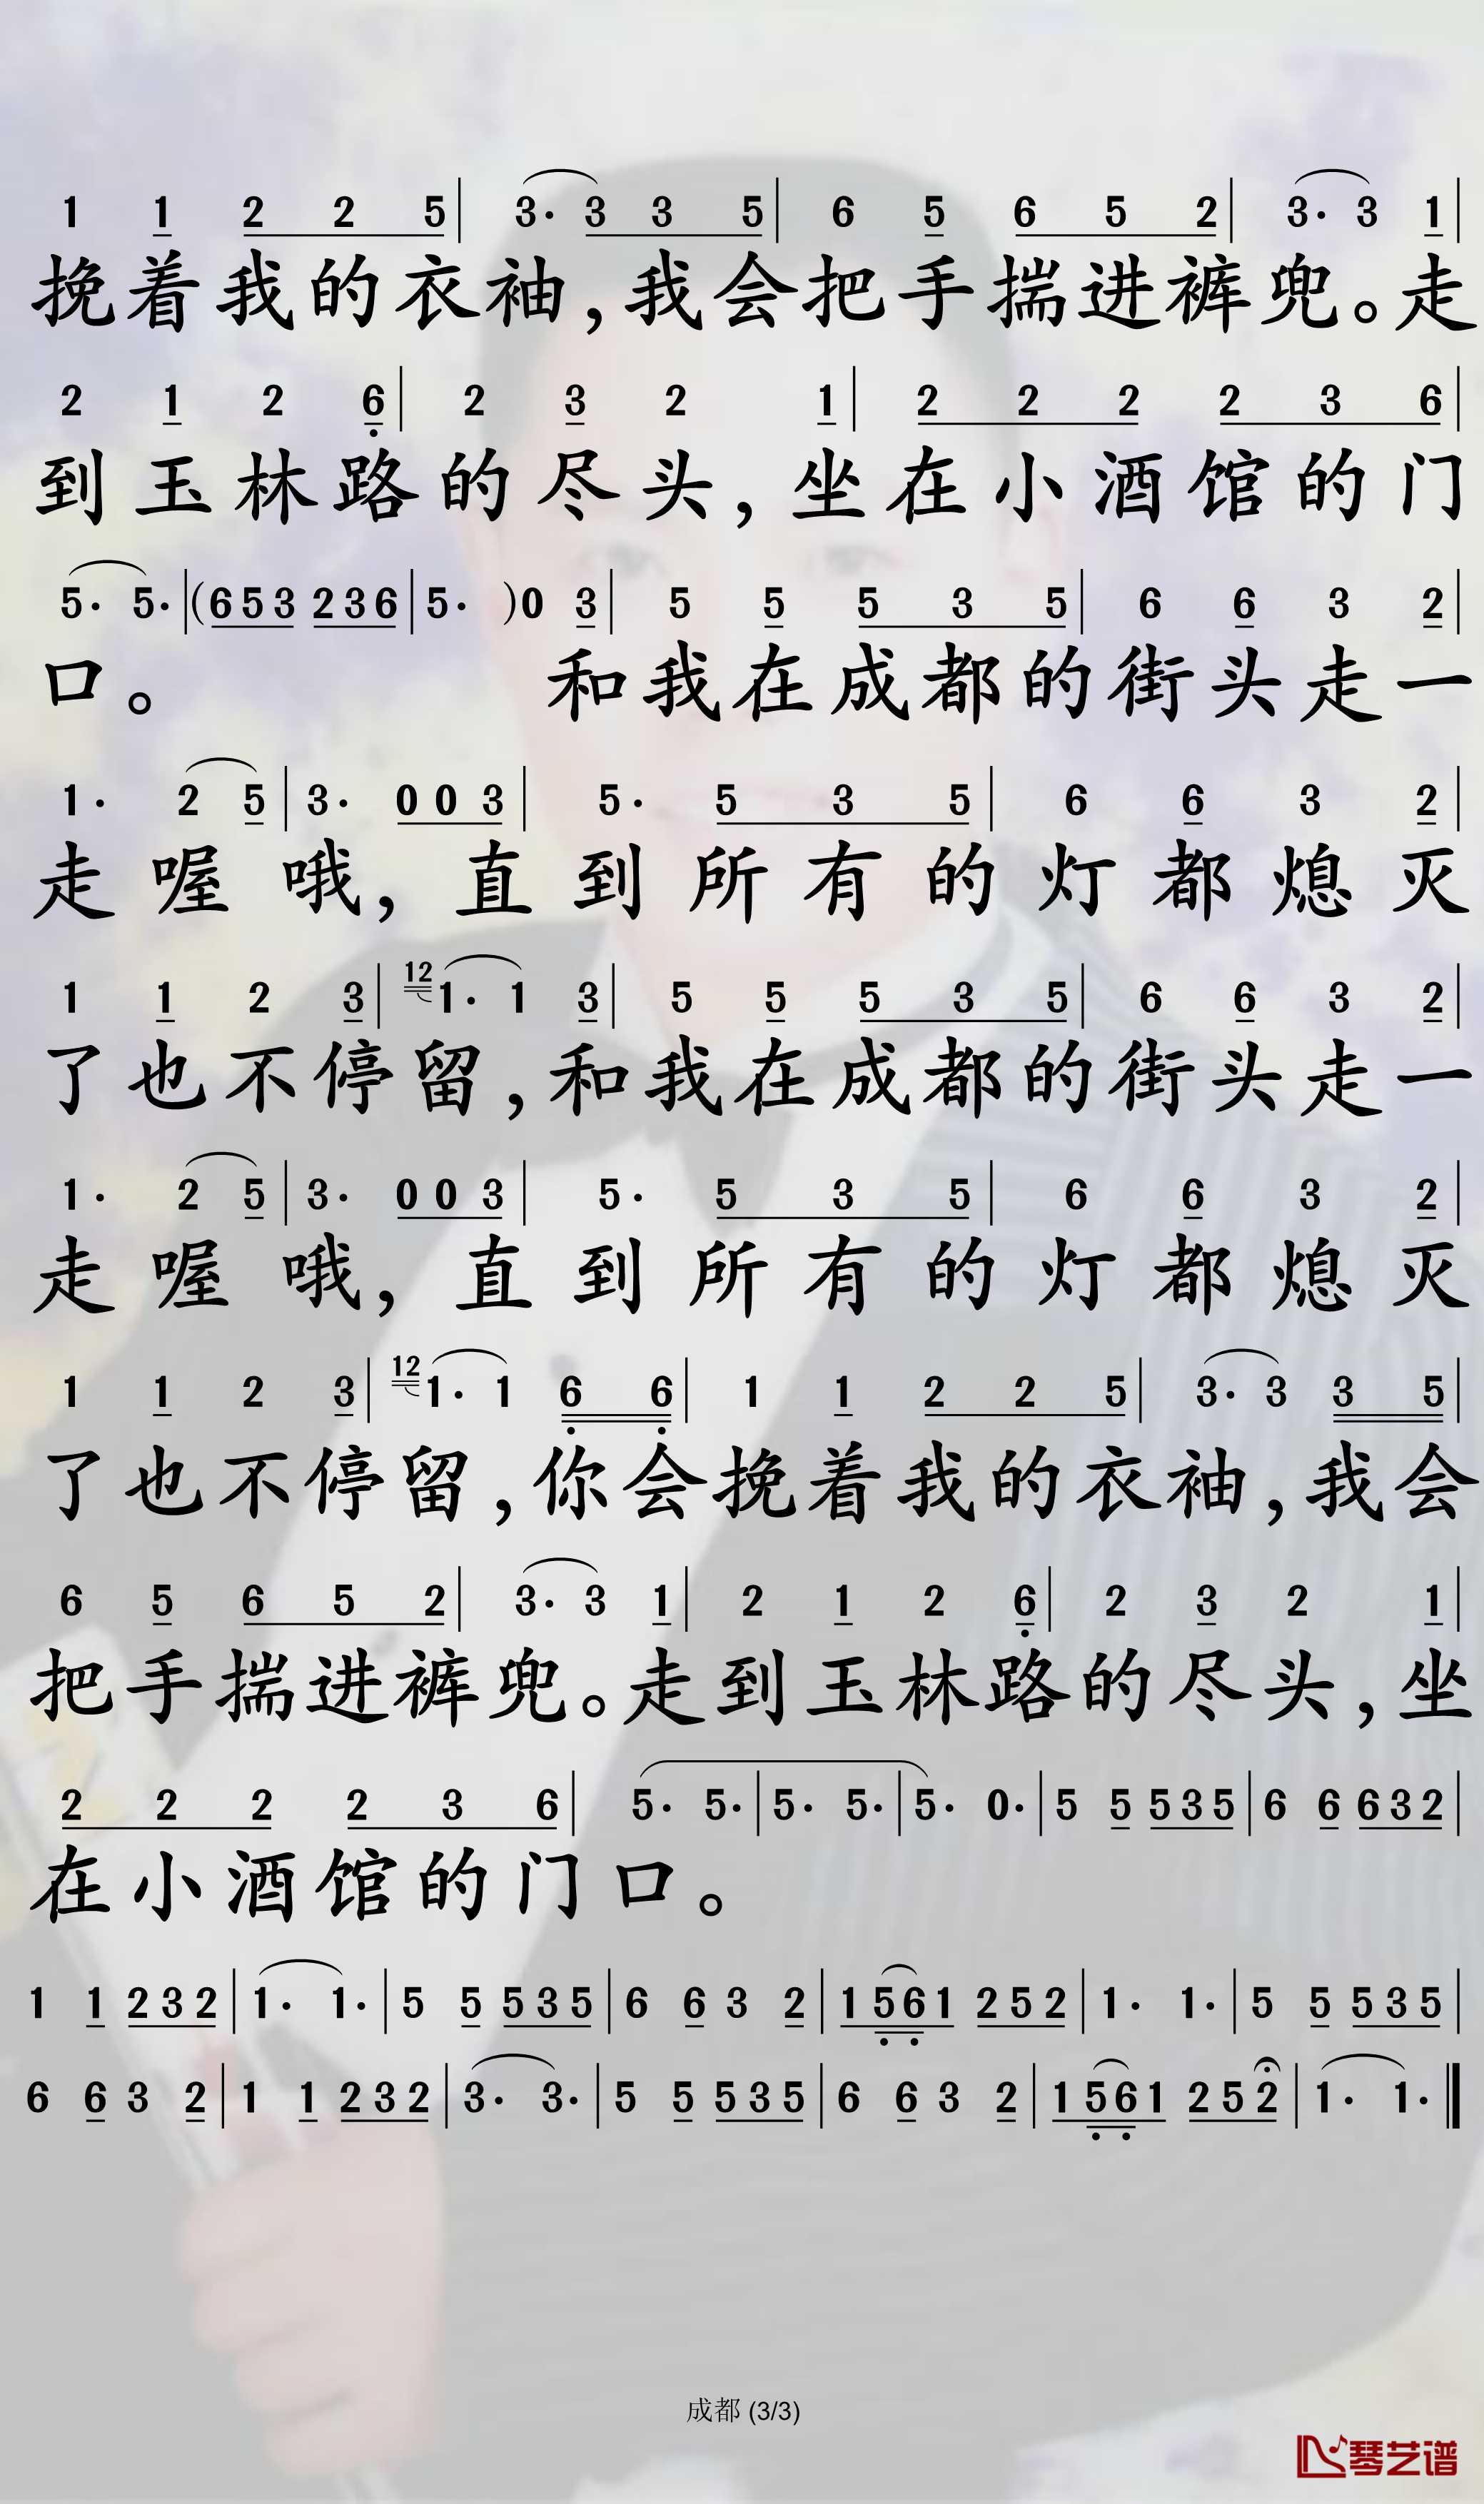 1 1 2 2 5 | 3· 3 3 5 | 6 5 6 5 2 | 3· 3 1 |
挽着我的衣袖,我会把手揣进裤兜。走
2 1 2 6 | 2 3 2 1 | 2 2 2 2 3 6 |
到玉林路的尽头,坐在小酒馆的门
5· 5· | (6 5 3 2 3 6 | 5· )0 3 | 5 5 5 3 5 | 6 6 3 2 |
口。 和我在成都的街头走一
1· 2 5 | 3· 0 0 3 | 5· 5 3 5 | 6 6 3 2 |
走喔哦,直到所有的灯都熄灭
1 1 2 3 | 12 1· 1 3 | 5 5 5 3 5 | 6 6 3 2 |
了也不停留,和我在成都的街头走一
1· 2 5 | 3· 0 0 3 | 5· 5 3 5 | 6 6 3 2 |
走喔哦,直到所有的灯都熄灭
1 1 2 3 | 12 1· 1 6 6 | 1 1 2 2 5 | 3· 3 3 5 |
了也不停留,你会挽着我的衣袖,我会
6 5 6 5 2 | 3· 3 1 | 2 1 2 6 | 2 3 2 1 |
把手揣进裤兜。走到玉林路的尽头,坐
2 2 2 2 3 6 | 5· 5· | 5· 5· | 5· 0· | 5 5 5 3 5 | 6 6 6 3 2 |
在小酒馆的门口。
1 1 2 3 2 | 1· 1· | 5 5 5 3 5 | 6 6 3 2 | 1 5 6 1 2 5 2 | 1· 1· | 5 5 5 3 5 |
6 6 3 2 | 1 1 2 3 2 | 3· 3· | 5 5 5 3 5 | 6 6 3 2 | 1 5 6 1 2 5 2 | 1· 1· ‖
成都 (3/3)
琴艺谱